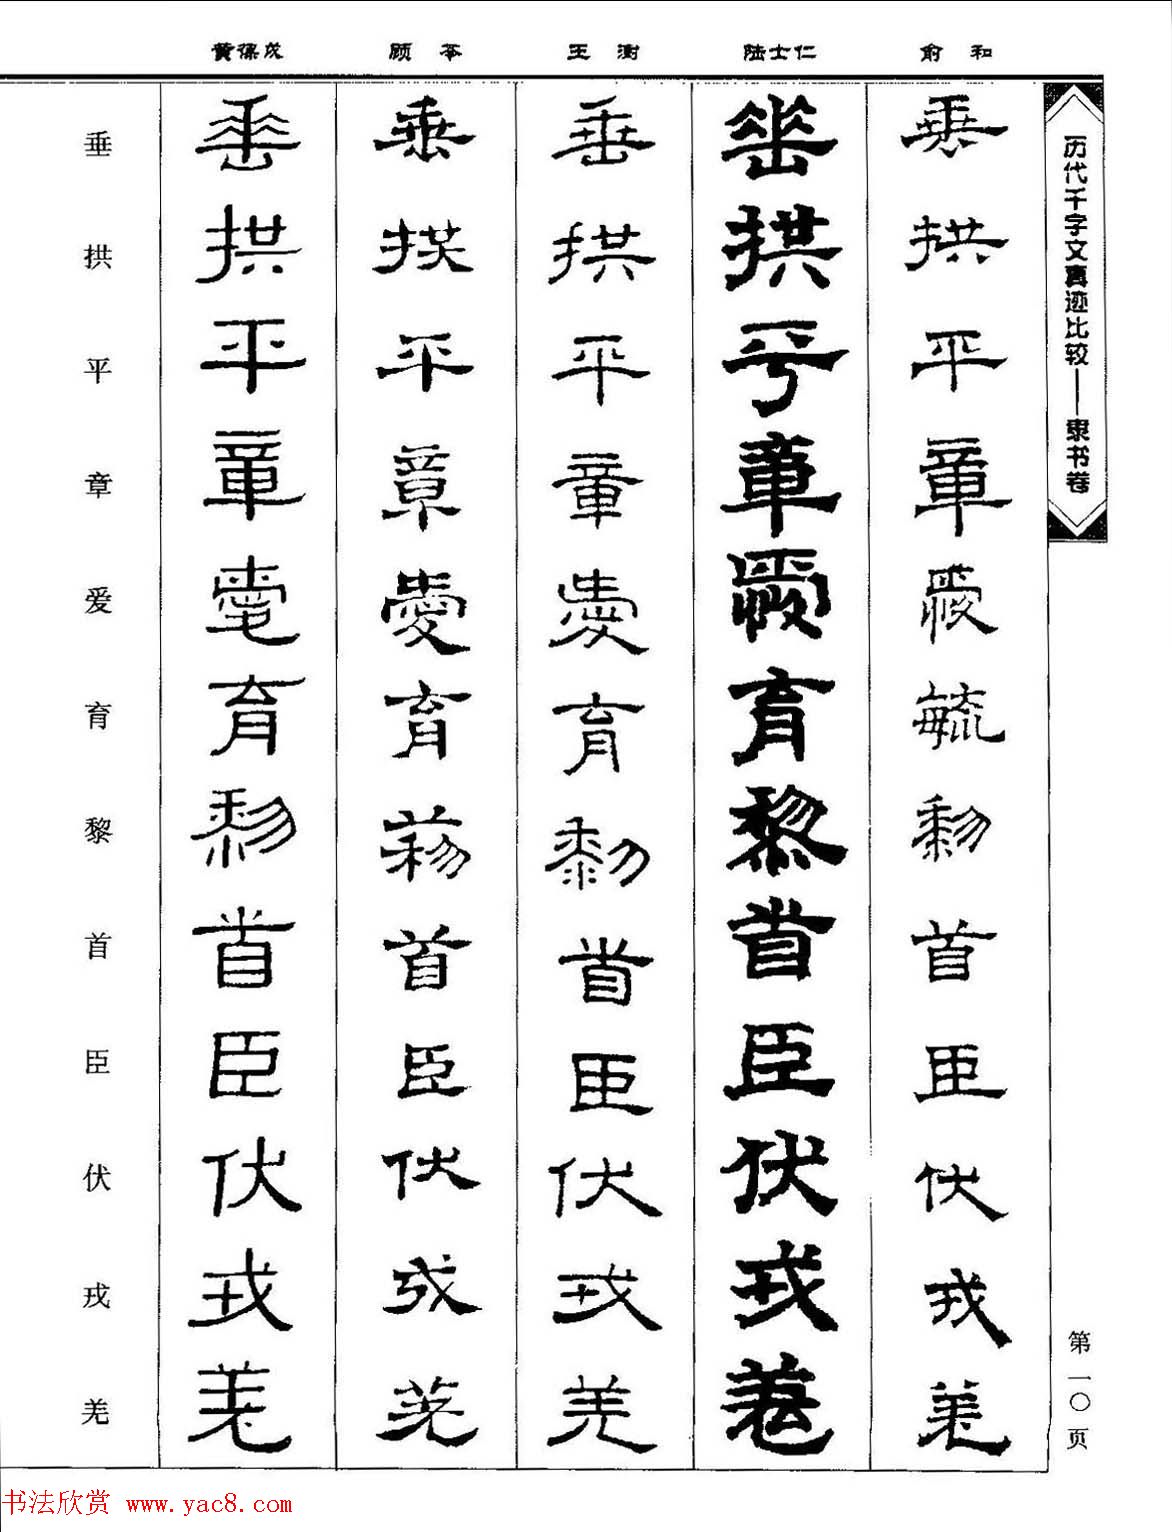 历代千字文真迹比较——隶书卷
第一〇页
俞和
垂拱平章爱育黎首臣伏戎羌
陆士仁
垂拱平章爱育黎首臣伏戎羌
王澍
垂拱平章爱育黎首臣伏戎羌
顾苓
垂拱平章爱育黎首臣伏戎羌
黄葆戉
垂拱平章爱育黎首臣伏戎羌
垂拱平章爱育黎首臣伏戎羌
书法欣赏 www.yac8.com